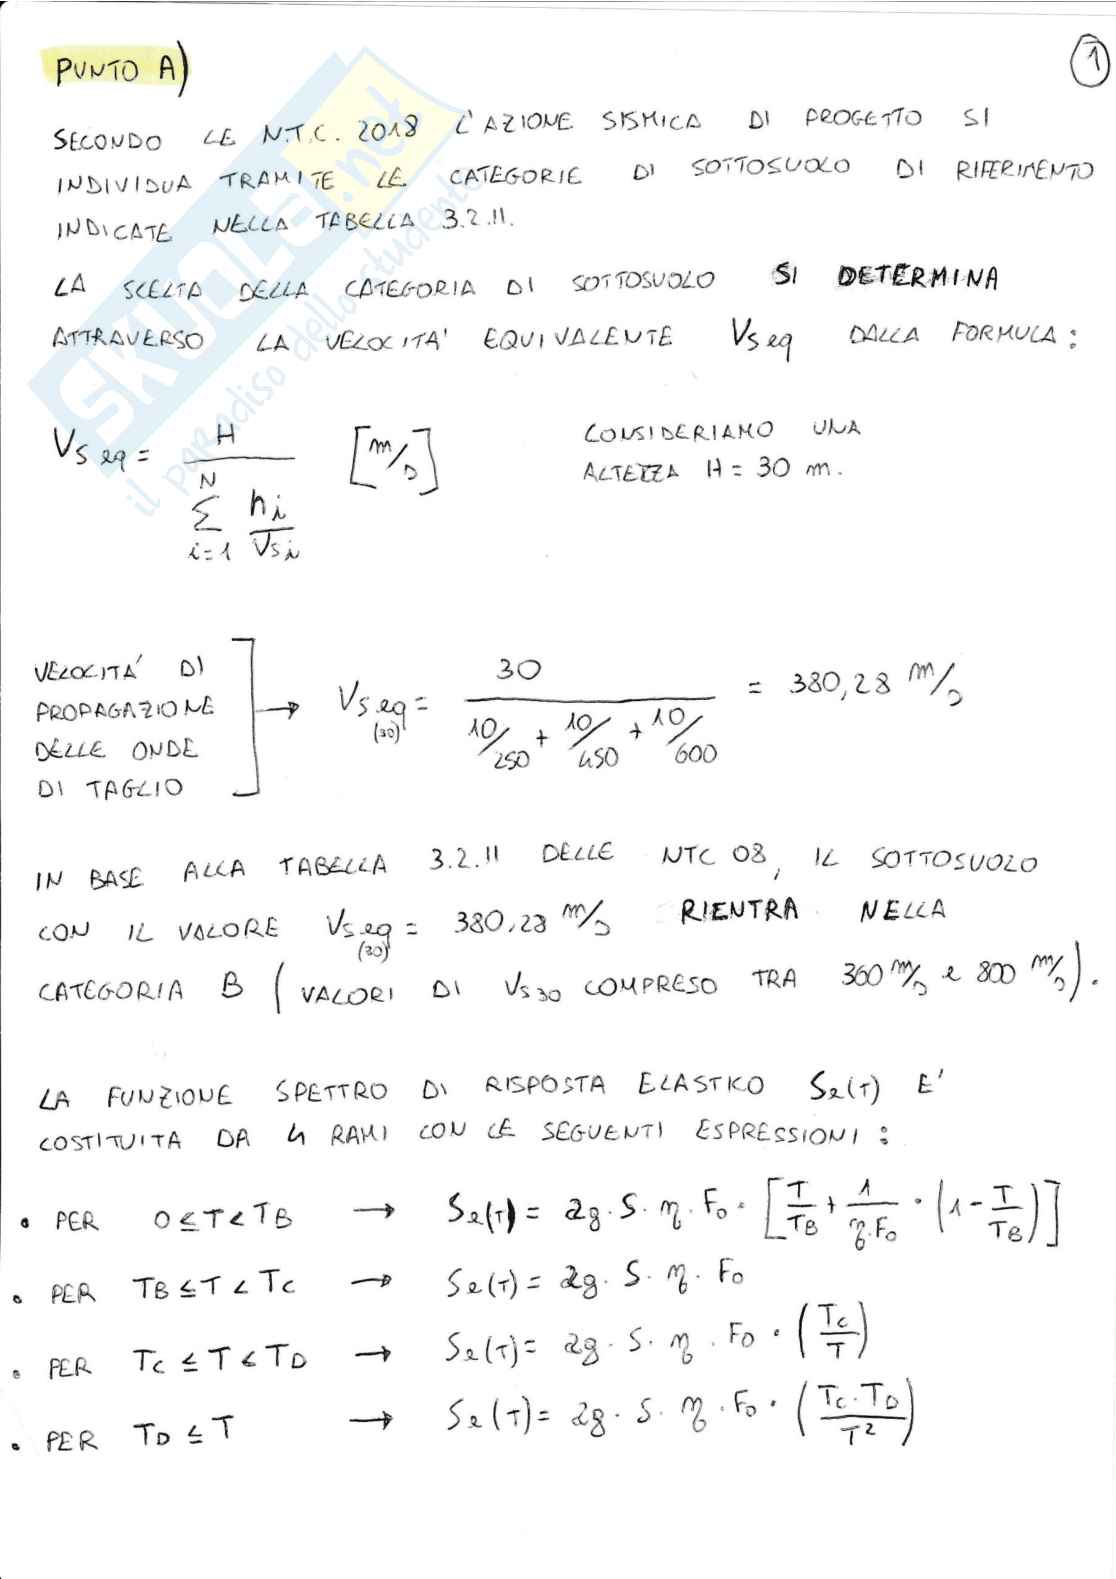 PUNTO A)
1
SECONDO LE N.T.C. 2018 L'AZIONE SISMICA DI PROGETTO SI
INDIVIDUA TRAMITE LE CATEGORIE DI SOTTOSUOLO DI RIFERIMENTO
INDICATE NELLA TABELLA 3.2.II.
LA SCELTA DELLA CATEGORIA DI SOTTOSUOLO SI DETERMINA
ATTRAVERSO LA VELOCITA' EQUIVALENTE Vs eq DALLA FORMULA:
Vs eq = H / Σ(i=1, N) hi/Vsi [m/s]
CONSIDERIAMO UNA
ALTEZZA H = 30 m.
VELOCITA' DI
PROPAGAZIONE
DELLE ONDE
DI TAGLIO
→ Vs eq (30) = 30 / (10/250 + 10/450 + 10/600) = 380,28 m/s
IN BASE ALLA TABELLA 3.2.II DELLE NTC 08, IL SOTTOSUOLO
CON IL VALORE Vs eq (30) = 380,28 m/s RIENTRA NELLA
CATEGORIA B (VALORI DI Vs30 COMPRESO TRA 360 m/s e 800 m/s).
LA FUNZIONE SPETTRO DI RISPOSTA ELASTICO Se(T) E'
COSTITUITA DA 4 RAMI CON LE SEGUENTI ESPRESSIONI:
• PER 0 ≤ T < TB → Se(T) = ag · S · η · Fo · [T/TB + 1/(η·Fo) · (1 - T/TB)]
• PER TB ≤ T < TC → Se(T) = ag · S · η · Fo
• PER TC ≤ T < TD → Se(T) = ag · S · η · Fo · (TC/T)
• PER TD ≤ T → Se(T) = ag · S · η · Fo · (TC · TD/T²)
SKUOLA.net
il paradiso dello studente